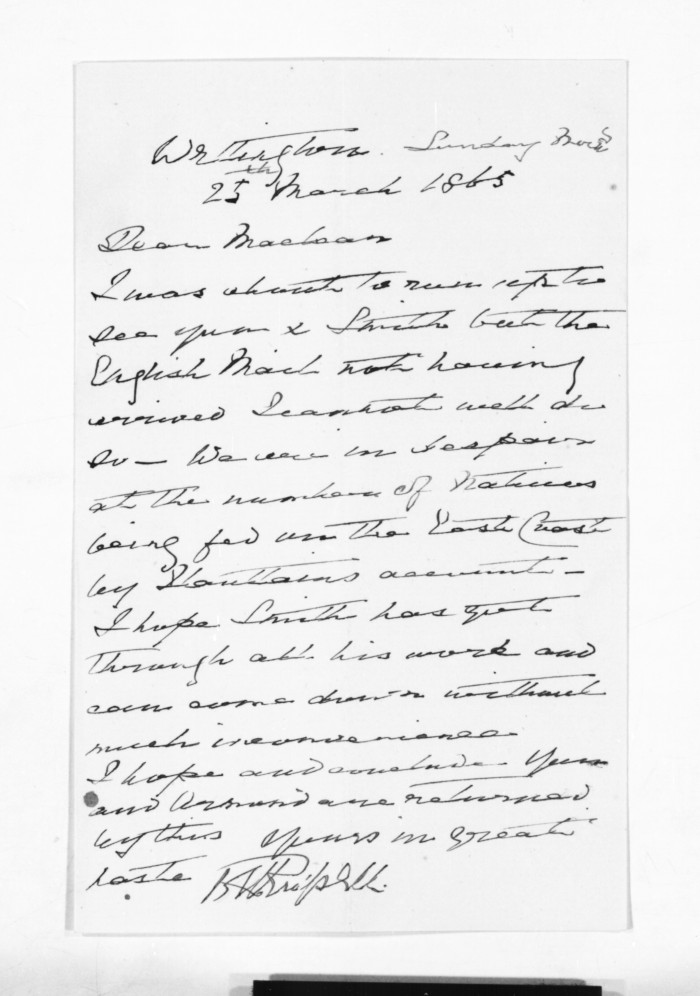 Wellington. Sunday Morng
25th March 1865
Dear Maclean
I was about to run up to
see you & Smith but the
English Mail not having
arrived I cannot well do
so – We are in despair
at the number of Natives
being fed on the East Coast
by account –
I hope Smith has got
through all his work and
can come down without
much inconvenience
I hope and conclude you
and Ormond are returned
by this Yours in great
haste